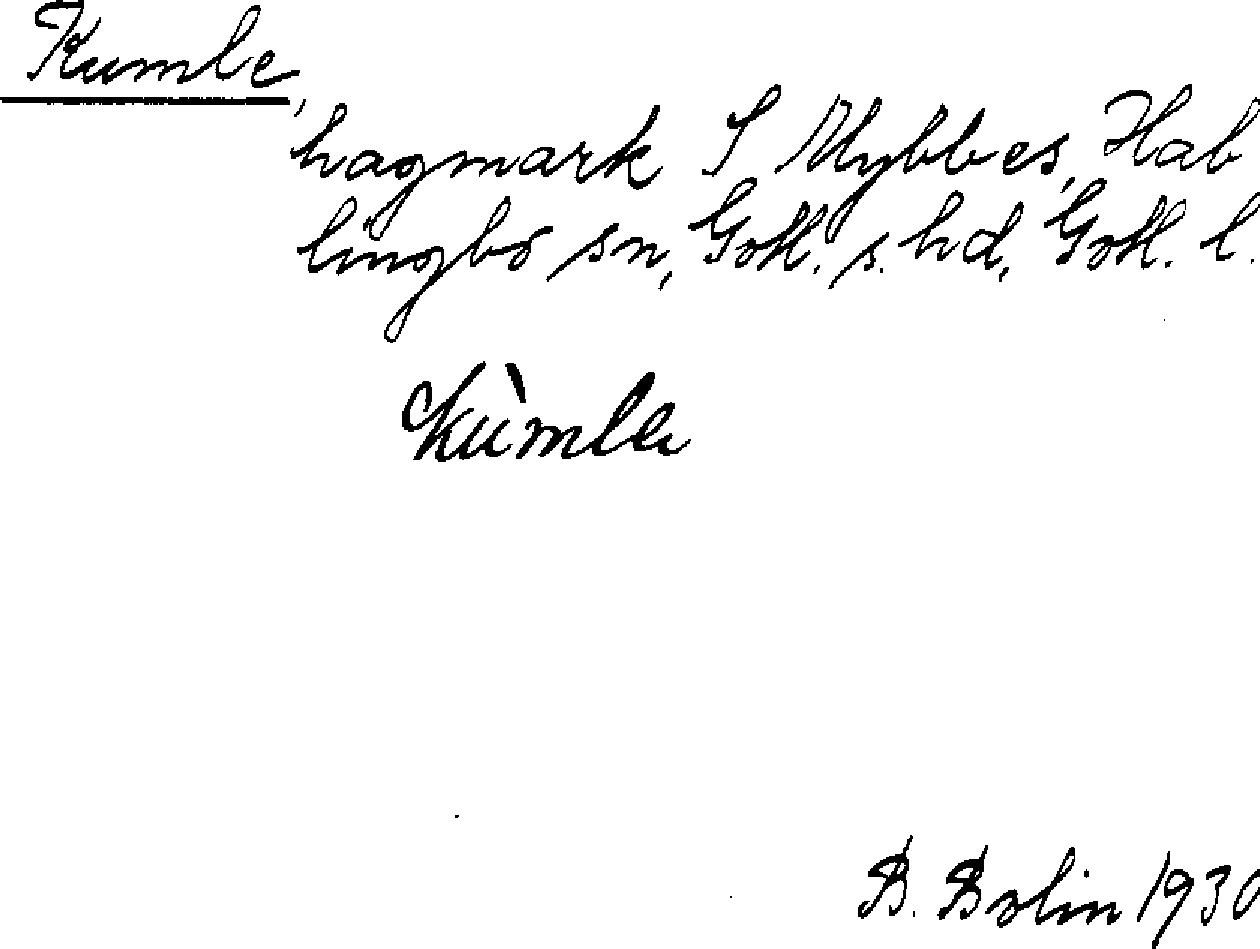 Kumle,
hagmark S Mybbes, Hab
lingbo sn, Gotl. s. hd, Gotl. l.
kùmla
B. Bolin 1930